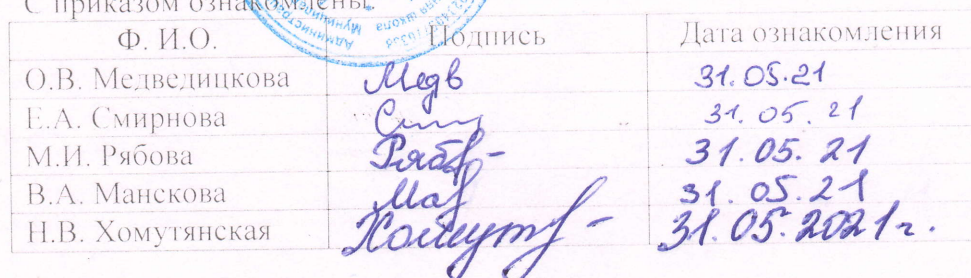 С приказом ознакомлены:
Ф. И.О. Подпись Дата ознакомления
О.В. Медведицкова Медв 31.05.21
Е.А. Смирнова 31.05.21
М.И. Рябова Рябу- 31.05.21
В.А. Манскова 31.05.21
Н.В. Хомутянская Хомут 31.05.2021г.